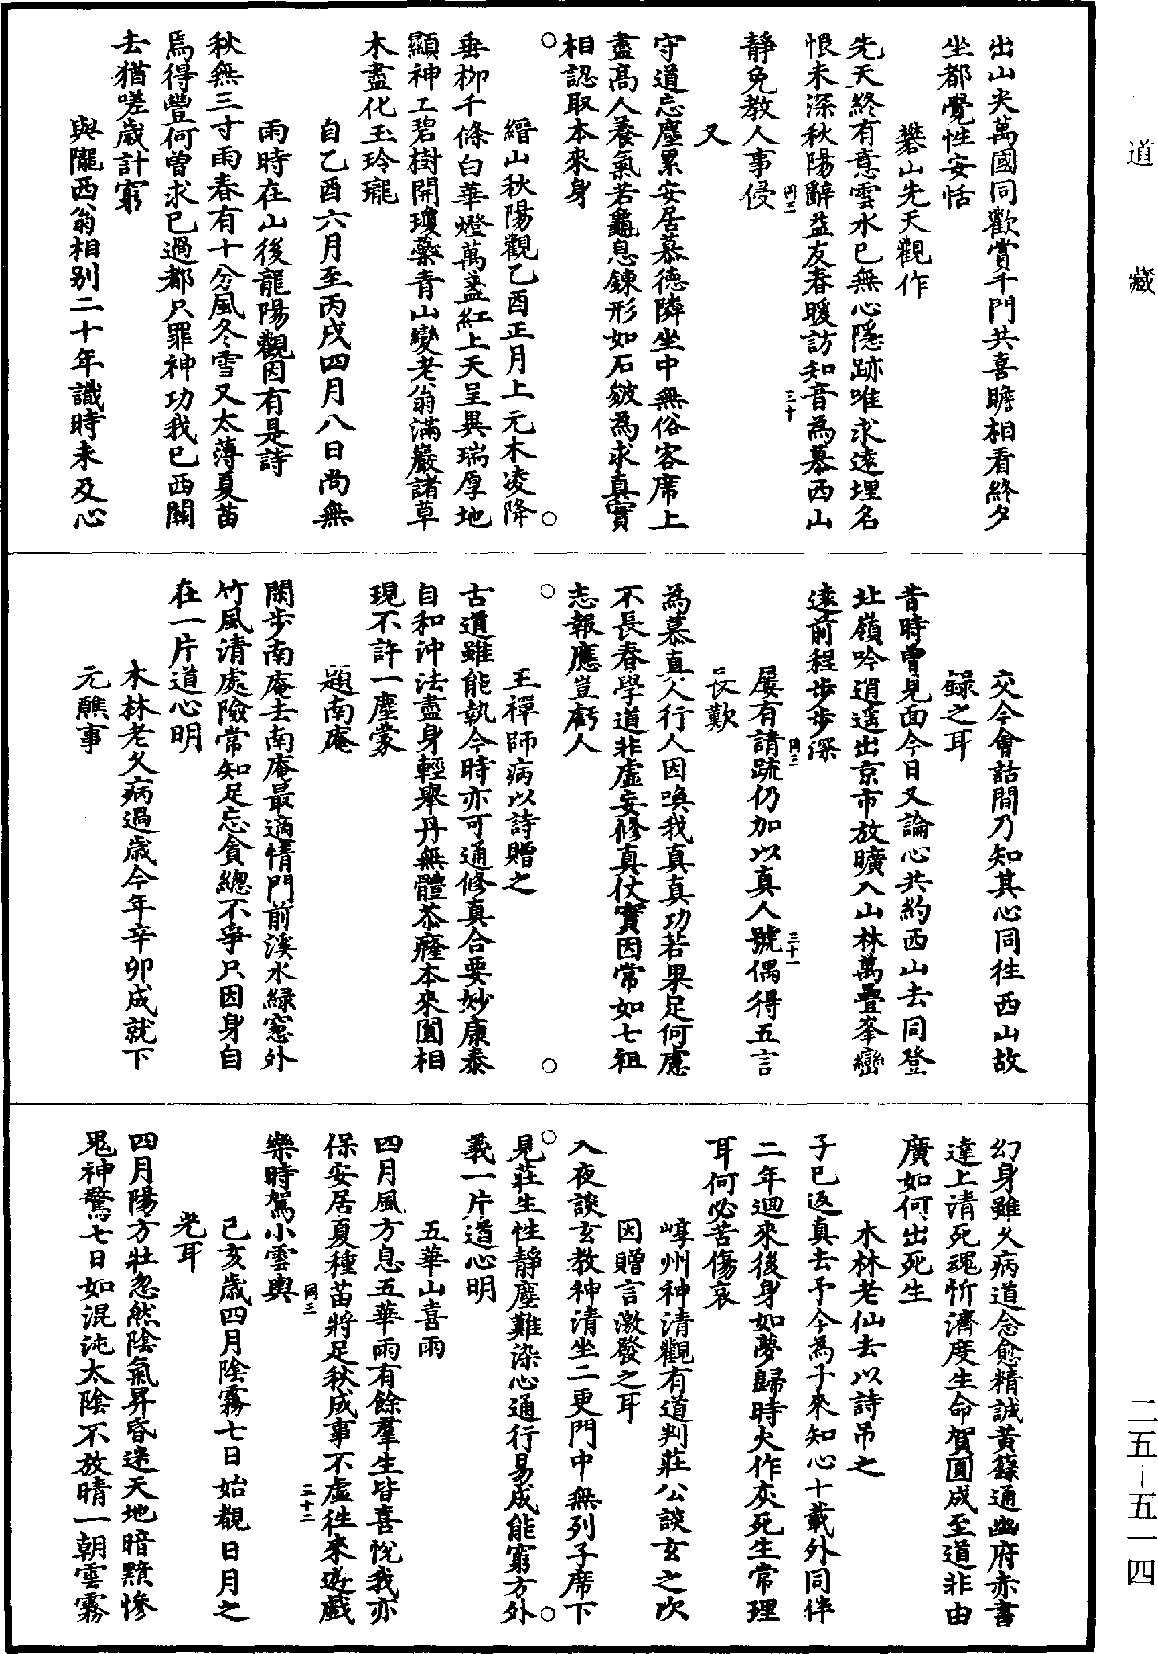 道藏
出山尖萬國同歡賞千門共喜瞻相看終夕
坐都覺性安恬
礬山先天觀作
先天終有意雲水已無心隱跡唯求遠埋名
恨未深秋陽辭益友春暖訪知音為慕西山
靜免教人事侵
又
守道忘塵累安居慕德隣坐中無俗客席上
盡高人養氣若龜息鍊形如石皴為求真實
相認取本來身
縉山秋陽觀乙酉正月上元木凌降
垂柳千條白華燈萬盞紅上天呈異瑞厚地
顯神工碧樹開瓊蘂青山變老翁滿巖諸草
木盡化玉玲瓏
自乙酉六月至丙戌四月八日尚無
雨時在山後龍陽觀因有是詩
秋無三寸雨春有十分風冬雪又太薄夏苗
焉得豐何曾求已過都只罪神功我已西關
去猶嗟歲計窮
與隴西翁相别二十年識時未及心
交今會話間乃知其心同徃西山故
録之耳
昔時曾見面今日又論心共約西山去同登
北嶺吟逍遥出京市放曠入山林萬疊峯巒
遠前程步步深
屢有請疏仍加以真人號偶得五言
長歎
為慕真人行人因喚我真真功若果足何慮
不長春學道非虚妄修真仗實因常如七祖
志報應豈虧人
王禪師病以詩贈之
古道雖能執今時亦可通修真合要妙康泰
自和沖法盡身輕舉丹無體恭癃本來圓相
現不許一塵蒙
題南庵
閑步南庵去南庵最適情門前溪水緑窻外
竹風清處險常知足忘貪總不爭只因身自
在一片道心明
木林老久病過歲今年辛卯成就下
元醮事
幻身雖久病道念愈精誠黃籙通幽府赤書
達上清死魂忻濟度生命賀圓成至道非由
廣如何出死生
木林老仙去以詩吊之
子已返真去予今為子來知心十載外同伴
二年廻來後身如夢歸時火作灰死生常理
耳何必苦傷哀
崞州神清觀有道判莊公談玄之次
因贈言激發之耳
入夜談玄教神清坐二更門中無列子席下
見莊生性靜塵難染心通行易成能窮方外
義一片道心明
五華山喜雨
四月風方息五華雨有餘羣生皆喜悅我亦
保安居夏種苗將足秋成事不虚徃來遊戲
樂時駕小雲輿
已亥歲四月陰霧七日始覩日月之
光耳
四月陽方壯忽然陰氣昇昏迷天地暗黲慘
鬼神驚七日如混沌太陰不放晴一朝雲霧
二五-五一四